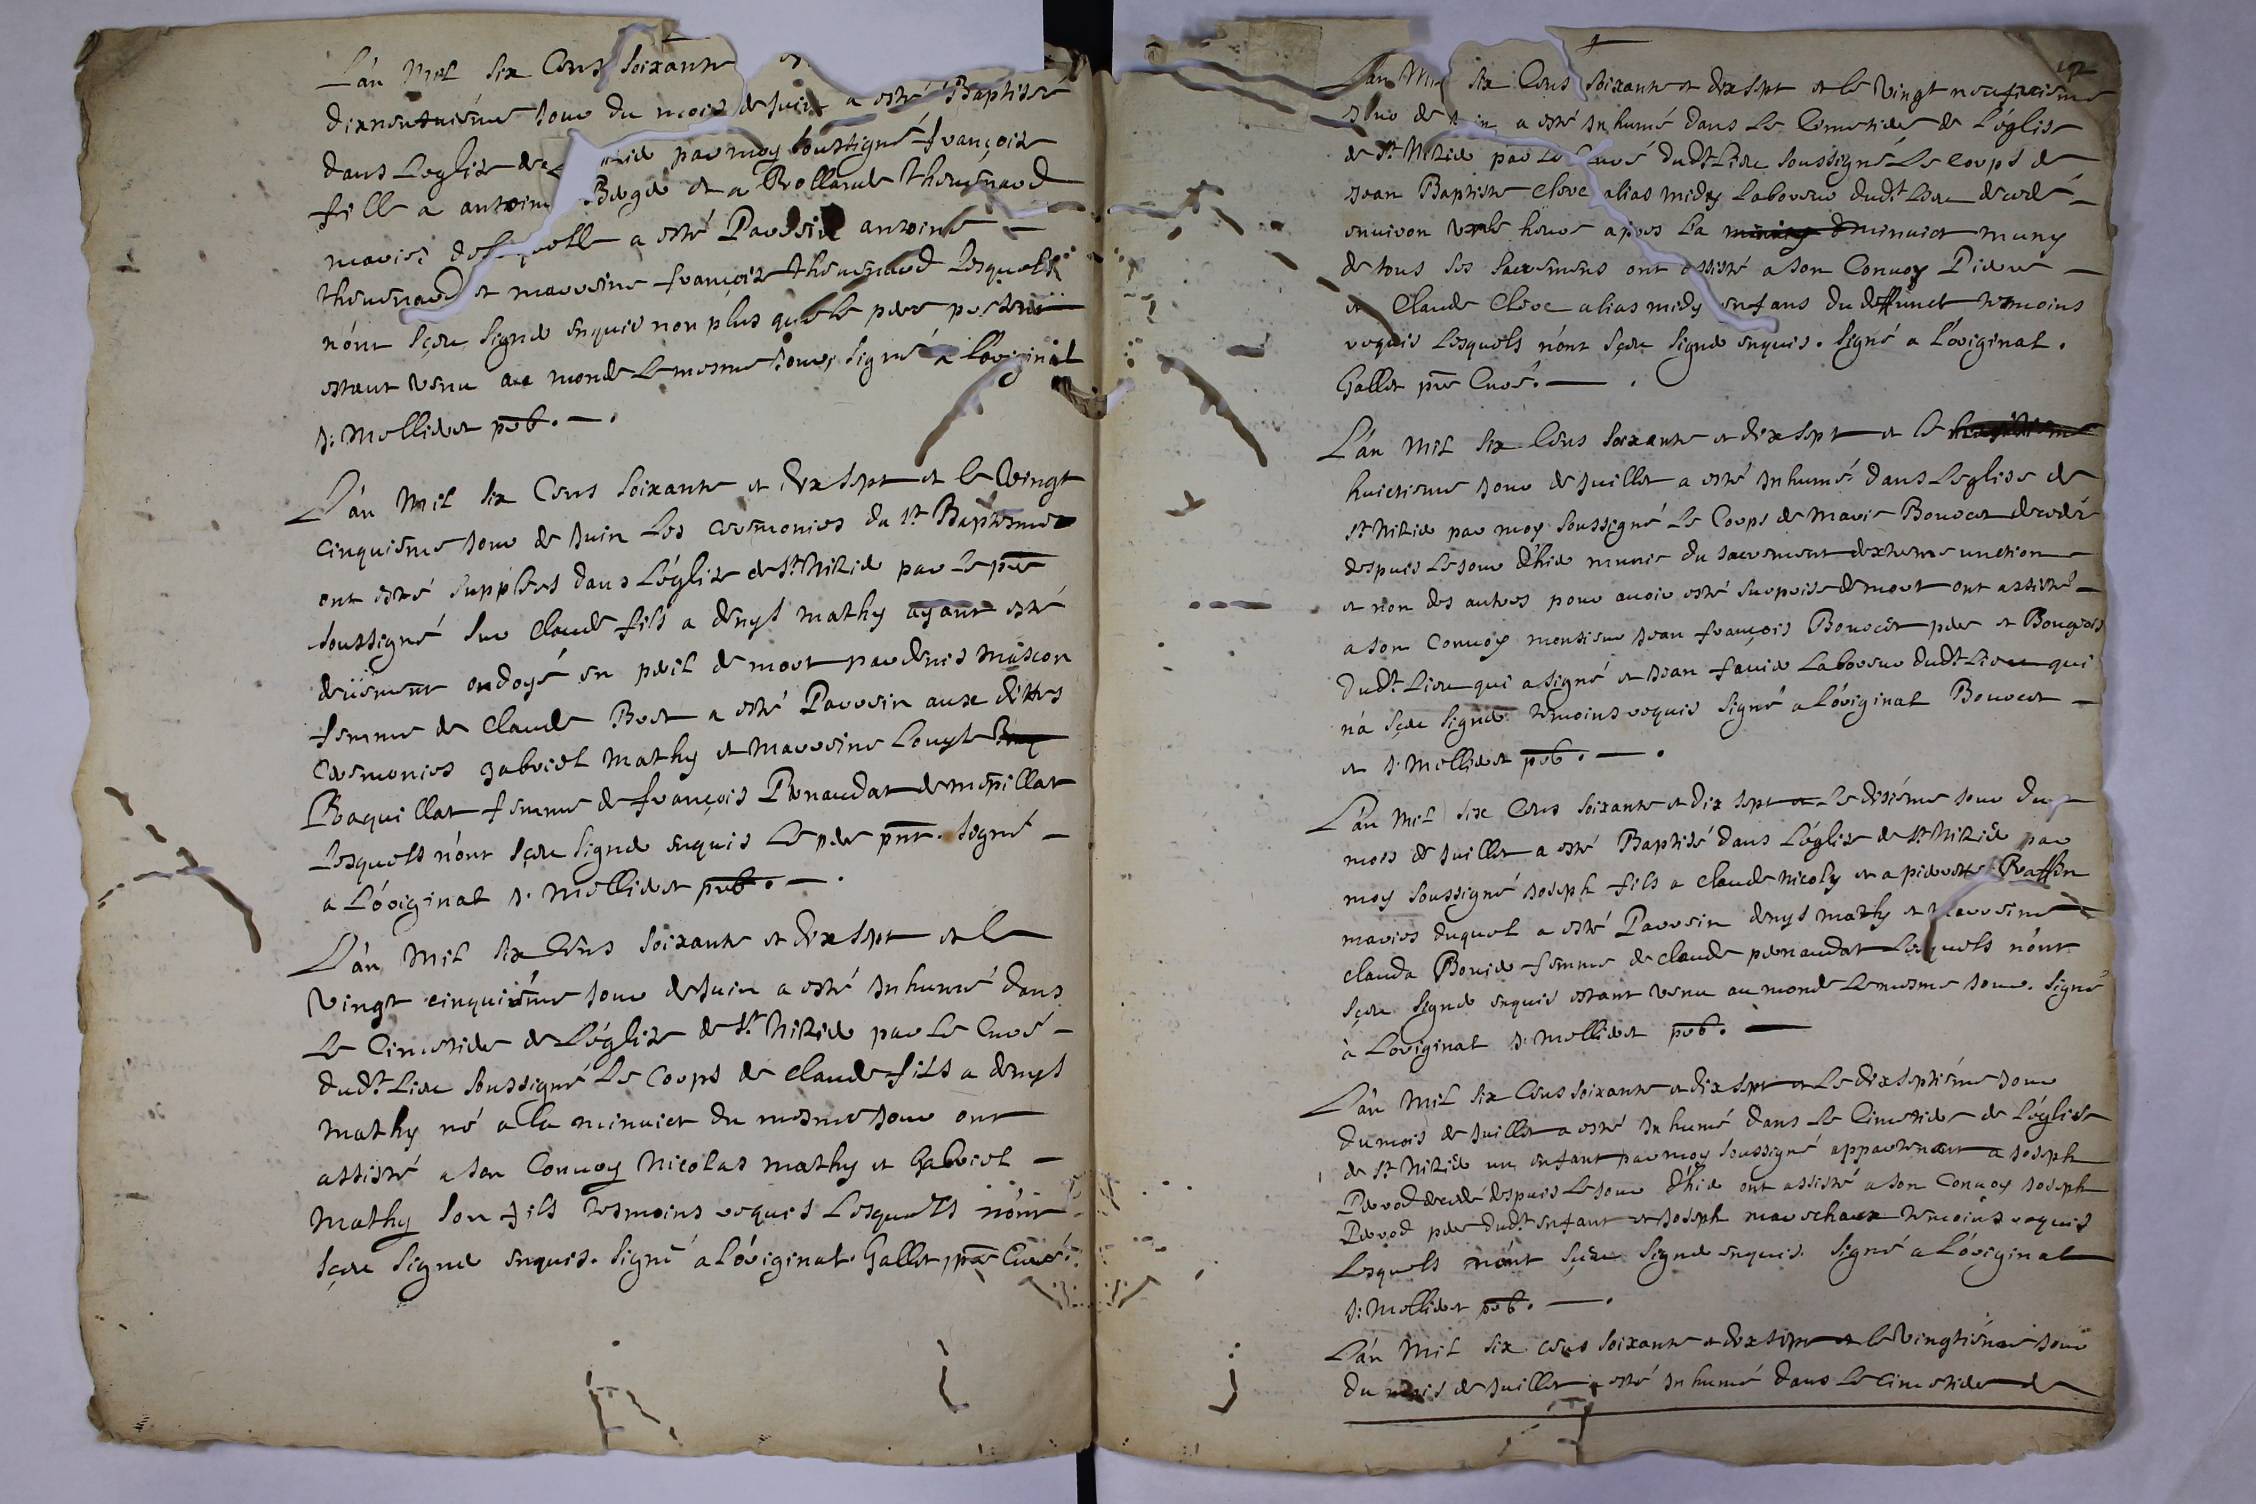 L'án Mil six Cens soixante et
dixneufuiéme Jour du mois de Juin a esté Baptisée
dans Leglise de par moy soussigné françoise
fille a antoine Bergé et a Rollande Theuenard
mariéz de laquelle a esté Parrein antoine
theuenard et marreine françoise theuenard lesquels
n'ónt sçeu signer enquis non plus que le pere present
estant venu au monde le mesme Jour, signé a L'óriginal
J: Mollieret pbr.
L'án Mil six Cens soixante et dix sept et le Vingt
cinquiéme Jour de Juin les ceremonies du st Baptesme
ont esté supplées dans L'église de St Nizier par le pre
soussigné sur claude fils a denys mathy ayant esté
deüement ondoyé en peril de mort par denis
femme de Claude Bret a esté Parrein aux dittes
Ceremonies gabriel Mathy et Marreine Louyse
Raquillat femme de françois Renaudat de mépillat
Lesquels n'ónt sçeu signer enquis Le pere pnt. Signé
a L'óriginal J. Mollieret pbr.
L'án Mil six Cens soixante et dix sept et le
Vingt cinquiéme Jour de Juin a esté Inhumé dans
Le Cimetiere de L'église de St Nizier par Le Curé
dudt. Lieu soussigné Le Corps de claude fils a denys
Mathy né a la minuict du mesme Jour ont
assisté a son Conuoy Nicolas mathy et Gabriel
Mathy son fils tesmoins requis Lesquels n'ónt
sçeu signer enquis. Signé a L'óriginal. Gallet, pre Curé.
L'án Mil six Cens soixante et dix sept et le Vingt neufuiéme
Jour de Juin a esté Inhumé dans Le Cimetiere de L'église
de St Nizier par Le Curé dudt. Lieu soussigné Le Corps de
Jean Baptiste Clerc alias midy Laboureur dudt. Lieu decedé
enuiron Vne heure apres La minuict muny
de tous ses sacremens ont assisté a son Conuoy Pierre
et Claude Clerc alias midy enfans du deffunct temoins
requis Lesquels n'ónt sçeu signer enquis. Signé a L'óriginal.
Gallet pre Curé.
L'án Mil six Cens soixante et dix sept et le
huictiesme Jour de Juillet a esté Inhumé dans Leglise de
St Nizier par moy soussigné Le Corps de Marie Borrcet decedée
despuis Le Jour d'hier munie du sacrement d'extreme unction
et non des autres pour auoir esté surprise de mort ont assisté
a son Conuoy monsieur Jean françois Borrcet pere et Bourgeois
dudt. Lieu qui a signé et Jean fauier Laboureur dudt. Lieu qui
n'a sçeu signer temoins requis signé a L'óriginal Borrcet
et J. Mollieret pbr.
L'án Mil six Cens soixante et dix sept et Le dixiéme Jour du
mois de Juillet a esté Baptisé dans L'église de St Nizier par
moy soussigné Joseph fils a claude nicoly et a pierrette Raffin
mariés duquel a esté Parrein denys mathy et Marreine
clauda Bouier femme de claude Renaudat Lesquels n'ónt
sçeu signer enquis estant venu au monde le mesme Jour. Signé
à L'original J. Mollieret pbr.
L'án Mil six Cens soixante et dix sept et Le dixseptiéme Jour
du mois de Juillet a esté Inhumé dans Le Cimetiere de L'église
de St Nizier un enfant par moy soussigné appartenant a Joseph
Perrod decedé despuis Le Jour d'hier ont assisté a son Conuoy Joseph
Perrod pere dudt. enfant et Joseph mareschaux temoins requis
Lesquels n'ónt sçeu signer enquis. Signé a L'óriginal
J: Mollieret pbr.
L'án Mil six cens soixante et dix sept et le Vingtiéme Jour
du mois de Juillet a esté Inhumé dans Le Cimetiere de